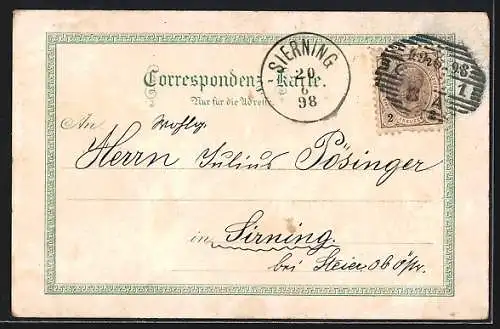 SIERNING
20
6
98
98
1
2
Correspondenz-Karte.
Nur für die Adresse.
An Wohlg.
Herrn Julius Pösinger
in Sirning.
bei Steier Ob Östr.